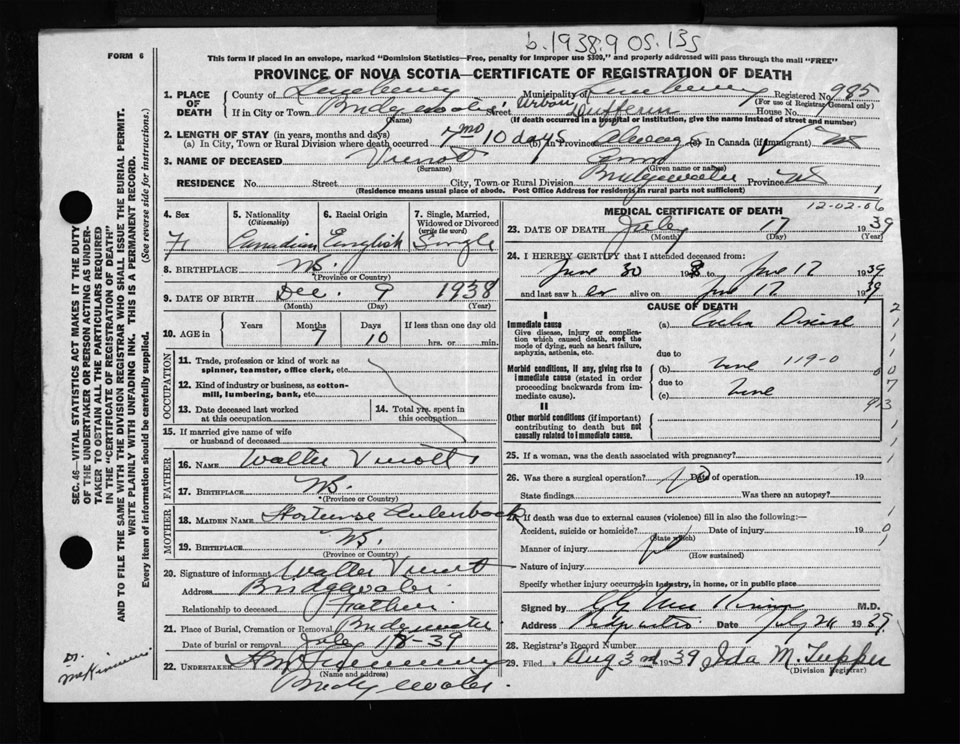 b.1938.9 05.135
FORM 6
This form if placed in an envelope, marked "Dominion Statistics—Free, penalty for improper use $300," and properly addressed will pass through the mail "FREE"
PROVINCE OF NOVA SCOTIA—CERTIFICATE OF REGISTRATION OF DEATH
1. PLACE OF DEATH County of Lunenburg Municipality of Lunenburg Registered No. 985
(For use of Registrar General only)
If in City or Town Bridgewater Urban Street Dufferin House No.
(Name) (If death occurred in a hospital or institution, give the name instead of street and number)
2. LENGTH OF STAY (in years, months and days)
(a) In City, Town or Rural Division where death occurred 7 mo 10 days (b) In Province Always (c) In Canada (if immigrant)
3. NAME OF DECEASED Vienot Ann
(Surname) (Given name or names)
RESIDENCE No. Street City, Town or Rural Division Bridgewater Province NS
(Residence means usual place of abode. Post Office Address for residents in rural parts not sufficient)
4. Sex F
5. Nationality (Citizenship) Canadian
6. Racial Origin English
7. Single, Married, Widowed or Divorced (write the word) Single
8. BIRTHPLACE N.S.
(Province or Country)
9. DATE OF BIRTH Dec. 9 1938
(Month) (Day) (Year)
10. AGE in Years Months 7 Days 10 If less than one day old hrs. or min.
OCCUPATION
11. Trade, profession or kind of work as spinner, teamster, office clerk, etc.
12. Kind of industry or business, as cotton-mill, lumbering, bank, etc.
13. Date deceased last worked at this occupation
14. Total yrs. spent in this occupation
15. If married give name of wife or husband of deceased
FATHER
16. NAME Walter Vienott
17. BIRTHPLACE N.S.
(Province or Country)
MOTHER
18. MAIDEN NAME Hortense Aulenback
19. BIRTHPLACE N.S.
(Province or Country)
20. Signature of informant Walter Vienott
Address Bridgewater
Relationship to deceased father
21. Place of Burial, Cremation or Removal Bridgewater
Date of burial or removal July 18-39
22. UNDERTAKER
(Name and address)
Bridgewater.
MEDICAL CERTIFICATE OF DEATH 12-02-06
23. DATE OF DEATH July 17 1939
(Month) (Day) (Year)
24. I HEREBY CERTIFY that I attended deceased from:
June 30 193 to June 17 1939
and last saw her alive on June 17 1939
CAUSE OF DEATH
I
Immediate cause
Give disease, injury or complication which caused death, not the mode of dying, such as heart failure, asphyxia, asthenia, etc.
(a) Disease
due to
Morbid conditions, if any, giving rise to immediate cause (stated in order proceeding backwards from immediate cause).
(b) None 119-0
due to
(c) None
II
Other morbid conditions (if important) contributing to death but not causally related to immediate cause.
25. If a woman, was the death associated with pregnancy?
26. Was there a surgical operation? Date of operation 19
State findings Was there an autopsy?
27. If death was due to external causes (violence) fill in also the following:—
Accident, suicide or homicide? Date of injury 19
(State which)
Manner of injury
(How sustained)
Nature of injury
Specify whether injury occurred in industry, in home, or in public place
Signed by M.D.
Address Date July 24 1939
28. Registrar's Record Number
29. Filed Aug 3rd 1939 Ida M. Tupper
(Division Registrar)
SEC. 46—VITAL STATISTICS ACT MAKES IT THE DUTY OF THE UNDERTAKER OR PERSON ACTING AS UNDERTAKER TO OBTAIN ALL THE PARTICULARS REQUIRED IN THE "CERTIFICATE OF REGISTRATION OF DEATH"
AND TO FILE THE SAME WITH THE DIVISION REGISTRAR WHO SHALL ISSUE THE BURIAL PERMIT.
WRITE PLAINLY WITH UNFADING INK. THIS IS A PERMANENT RECORD.
Every item of information should be carefully supplied. (See reverse side for instructions.)
Dr.
McKinnon